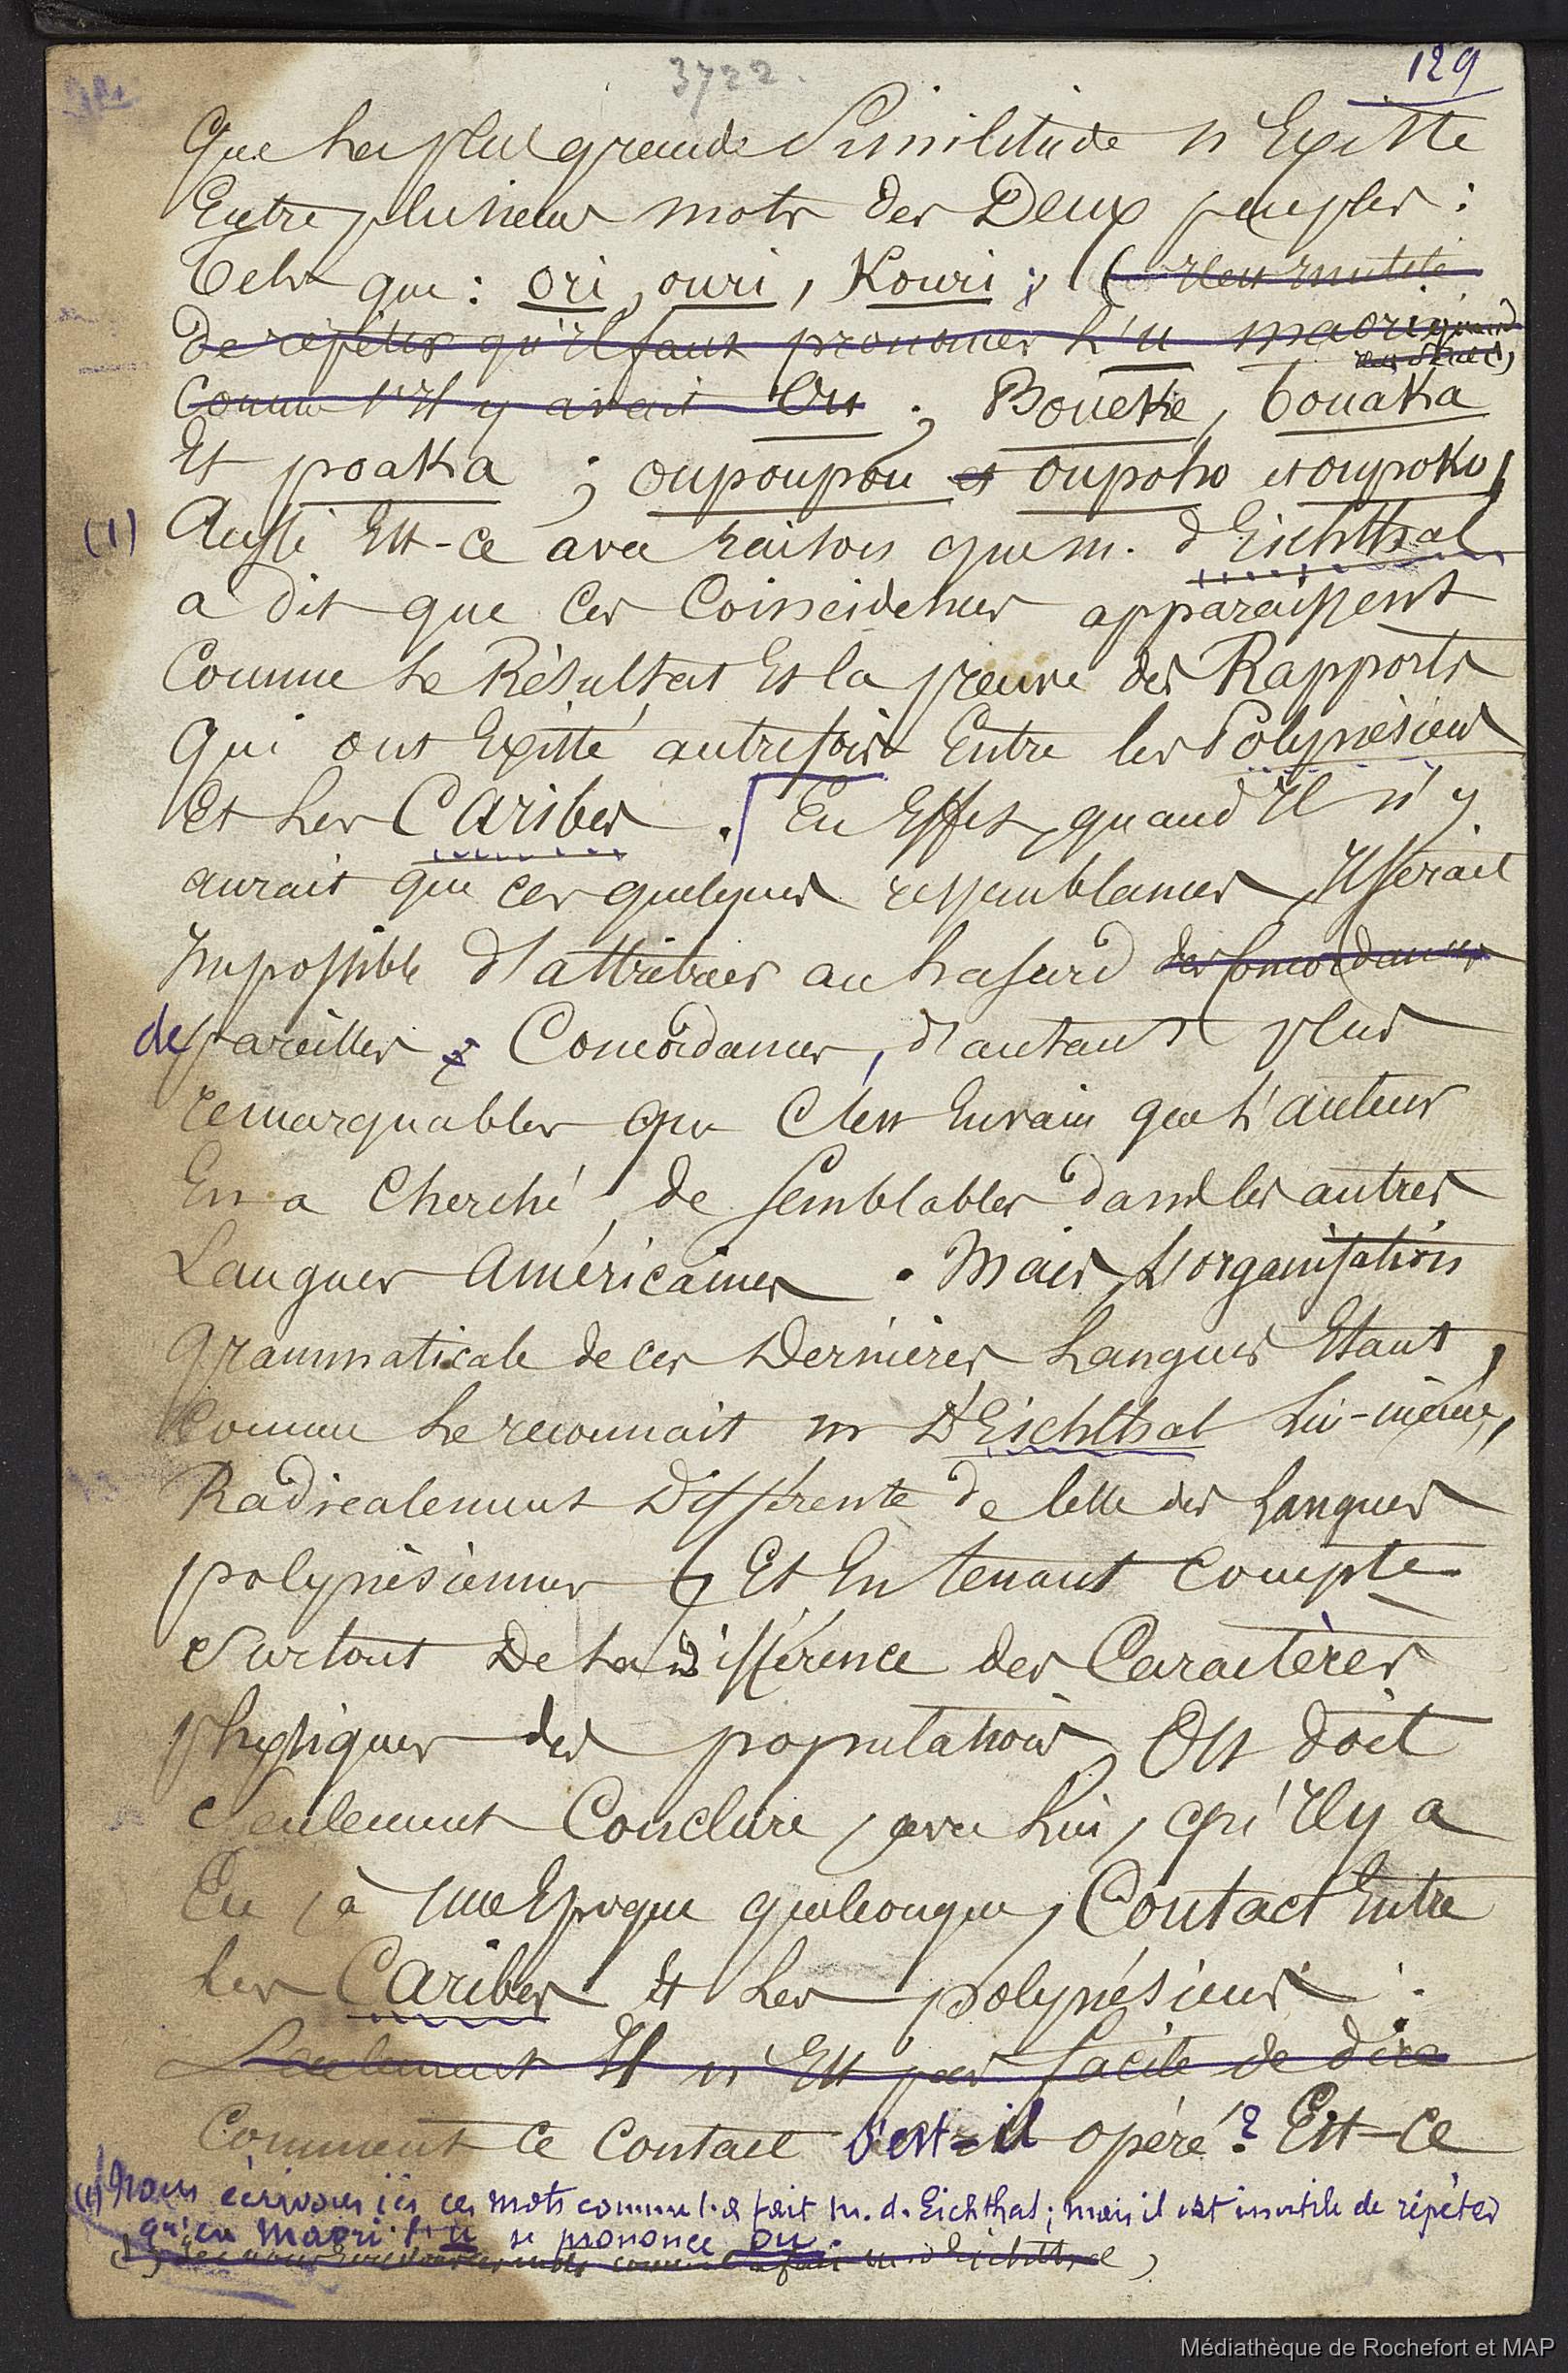 3722.
129
Que la plus grande Similitude n'Existe
Entre plusieurs mots des Deux peuples :
Tels que : ori, ouri, Kouri ; (il est inutile
De répéter qu'il faut prononcer l'u maori quand
Comme s'il y avait Ou ; Bouéké, bouaka
Et poaka ; oupoupou et oupoho et oupoko,
(1) Aussi Est-ce avec raison que m. d'Eichthal
a dit que Ces Coincidences apparaissent
Comme le Résultat Et la preuve des Rapports
Qui ont Existé autrefois Entre les Polynésiens
Et les Caribes . En Effet, quand Il n'y
aurait que ces quelques ressemblances, Il serait
Impossible d'attribuer au hasard des Concordances
de pareilles Concordances, d'autant plus
remarquables que C'est Envain que l'auteur
En a Cherché de semblables dans les autres
Langues Américaines . Mais, L'organisation
Grammaticale de ces Dernières Langues Etant,
Comme le reconnait m D'Eichthal lui-même,
Radicalement Différente de Celle des Langues
polynésiennes Et En tenant Compte
Surtout De la différence des Caractères
physiques des populations, On doit
Seulement Conclure, avec lui, qu'Il y a
Eu, à une Epoque quelconque, Contact Entre
les Caribes Et les polynésiens .
Seulement Il n'Est pas facile de dire
Comment Ce Contact s'est-il opéré ? Est-Ce
(1) Nous écrivons ici ces mots comme l'a fait m. d. Eichthal ; mais il est inutile de répéter
qu'en Maori l'u se prononce ou.
ces mots comme l'a fait m d'Eichthal,
Médiathèque de Rochefort et MAP